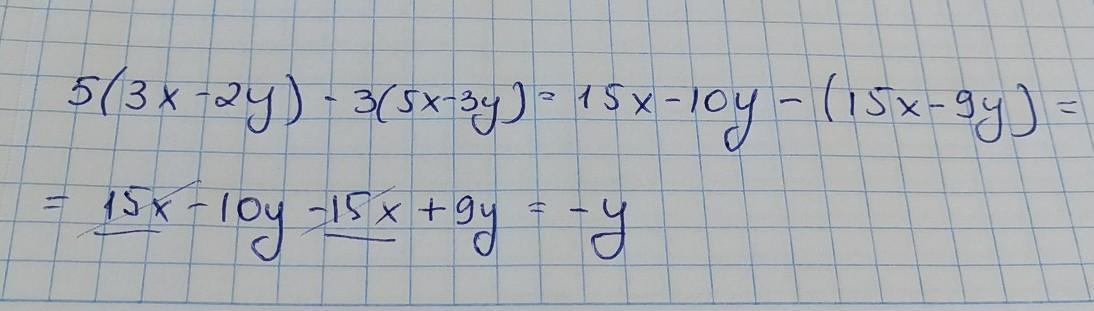 5(3x-2y)-3(5x-3y)=15x-10y-(15x-9y)=
=15x-10y-15x+9y=-y